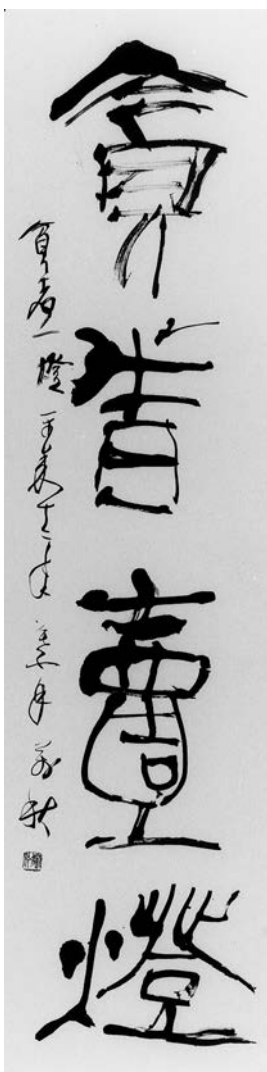 貧者壹燈
貧者一燈 平成